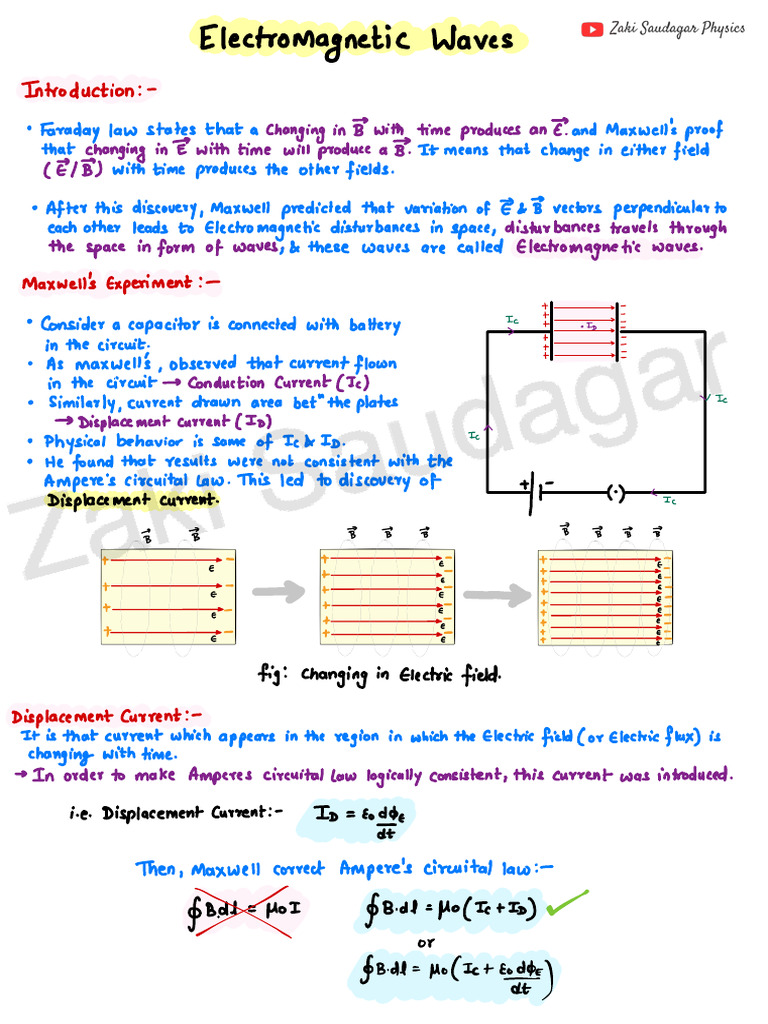 Electromagnetic Waves
Zaki Saudagar Physics
Introduction:-
• Faraday law states that a Changing in B⃗ with time produces an E⃗. and Maxwell's proof
that changing in E⃗ with time will produce a B⃗. It means that change in either field
(E⃗/B⃗) with time produces the other fields.
• After this discovery, Maxwell predicted that variation of E⃗ & B⃗ vectors perpendicular to
each other leads to Electromagnetic disturbances in space, disturbances travels through
the space in form of waves, & these waves are called Electromagnetic waves.
Maxwell's Experiment:-
• Consider a capacitor is connected with battery
in the circuit.
• As maxwell's, observed that current flown
in the circuit → Conduction Current (Ic)
• Similarly, current drawn area betⁿ the plates
→ Displacement current (ID)
• Physical behavior is same of Ic & ID.
• He found that results were not consistent with the
Ampere's circuital law. This led to discovery of
Displacement current.
Ic
+ + + + +
• ID
- - - - -
Ic
Ic
+ -
(·)
Ic
Zaki Saudagar
B⃗ B⃗
+ - E
+ - E
+ - E
+ - E
B⃗ B⃗ B⃗
+ - E
+ - E
+ - E
+ - E
+ - E
+ - E
B⃗ B⃗ B⃗ B⃗
+ - E
+ - E
+ - E
+ - E
+ - E
+ - E
+ - E
+ - E
fig: Changing in Electric field.
Displacement Current:-
It is that current which appears in the region in which the Electric field (or Electric flux) is
changing with time.
→ In order to make Amperes circuital law logically consistent, this current was introduced.
i.e. Displacement Current:- ID = ε₀ dϕE/dt
Then, Maxwell correct Ampere's circuital law:-
∮B.dl = μ₀I ∮B·dl = μ₀(Ic + ID) ✓
or
∮B·dl = μ₀(Ic + ε₀ dϕE/dt)